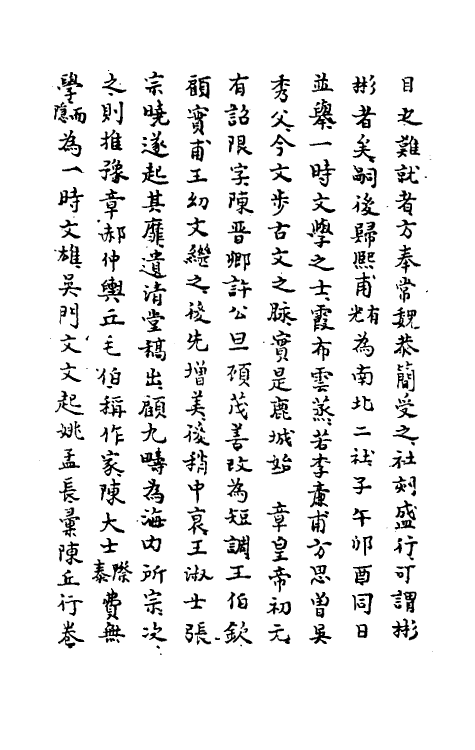 目史難就者方奉常魏恭簡受之社刻盛行可謂彬
彬者矣嗣後歸熙甫有光為南北二社子午卯酉同日
並舉一時文學之士霞布雲蒸若李廉甫方思曾吳
秀父今文步古文之脉實是鹿城始 章皇帝初元
有詔限字陳晉卿許公旦碩茂善改為短調王伯欽
顧實甫王幼文繼之後先增美後稍中衰王淑士張
宗曉遂起其靡遺清堂稿出顧九疇為海內所宗次
之則推豫章郝仲輿丘毛伯稱作家陳大士際泰費無
學而隱為一時文雄吳門文文起姚孟長彙陳丘行卷